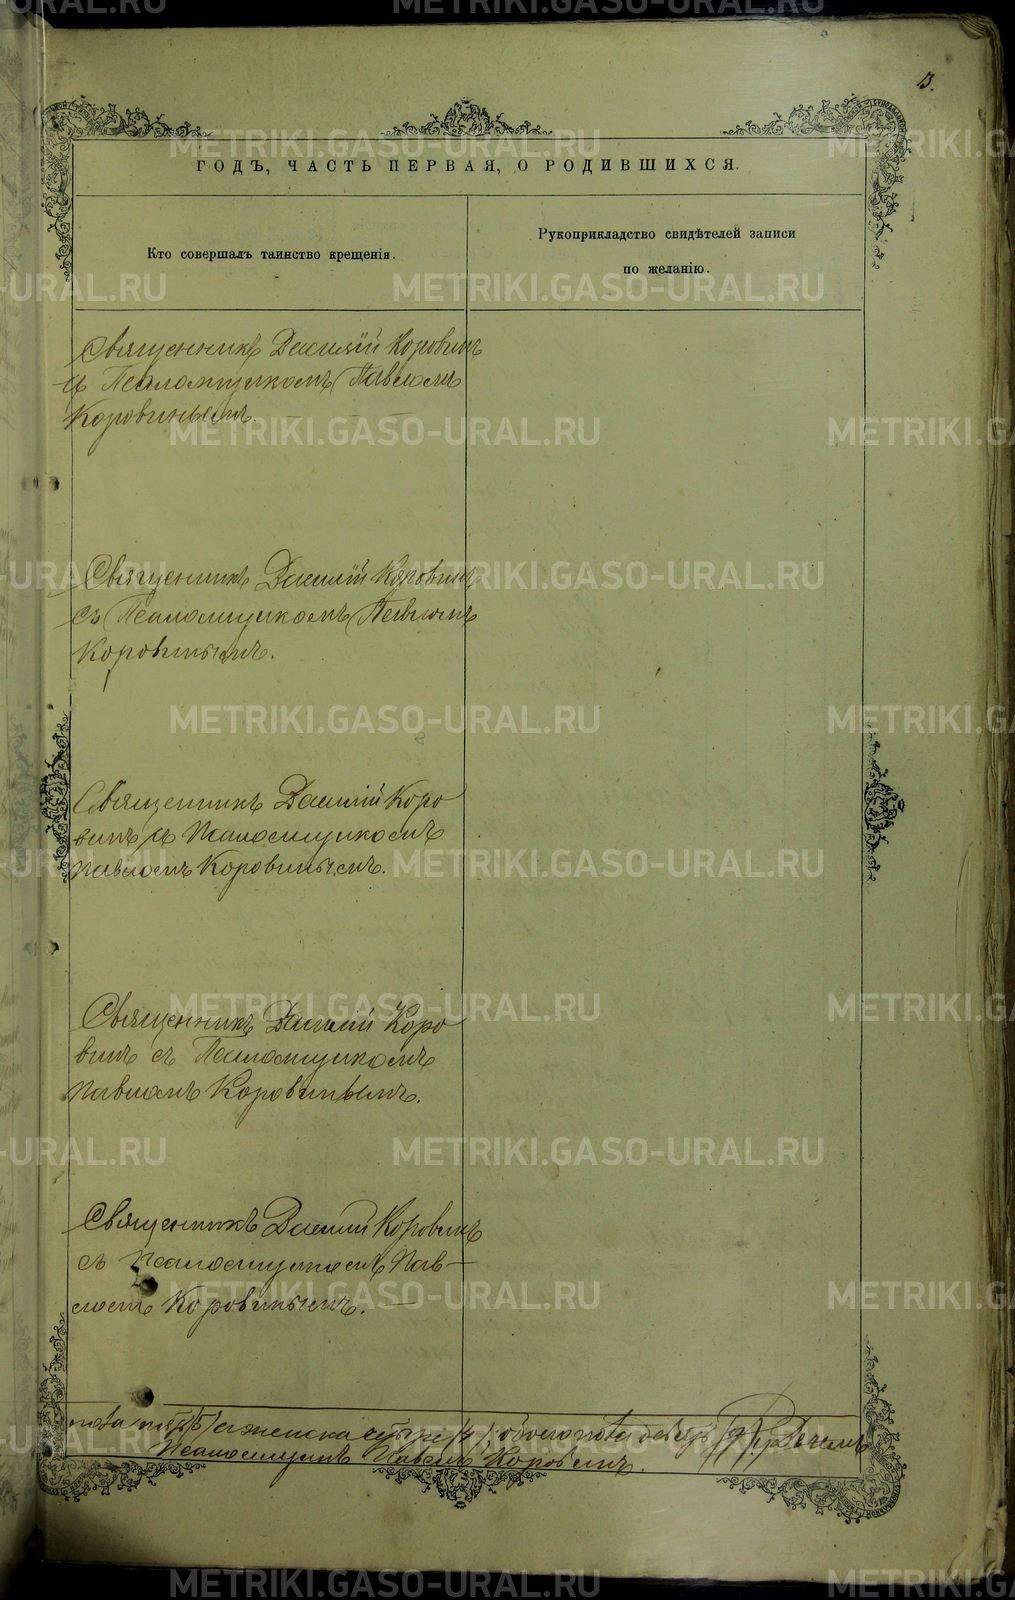 13.
ГОДЪ, ЧАСТЬ ПЕРВАЯ, О РОДИВШИХСЯ.
Кто совершалъ таинство крещенія.
Рукоприкладство свидѣтелей записи
по желанію.
Священникъ Василій Коровинъ
съ Псаломщикомъ Павломъ
Коровинымъ.
Священникъ Василій Коровинъ
съ Псаломщикомъ Павломъ
Коровинымъ.
Священникъ Василій Коро
винъ съ Псаломщикомъ
Павломъ Коровинымъ.
Священникъ Василій Коро
винъ съ Псаломщикомъ
Павломъ Коровинымъ.
Священникъ Василій Коровинъ
съ Псаломщикомъ Пав-
ломъ Коровинымъ.
пола пять /5/ женска четыре /4/ обоего пола девять /9/
Псаломщикъ Павелъ Коровинъ.
METRIKI.GASO-URAL.RU